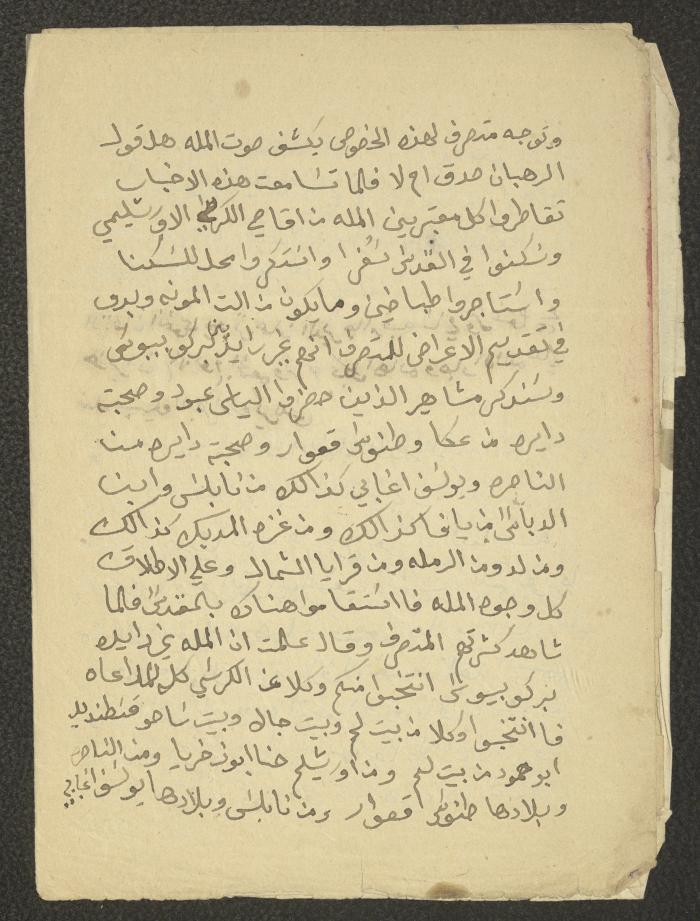 وتوجه متصرف لهذه الخصوص يكشف صوت المله هل قول
الرهبان صدق ام لا فلما تسامعت هذه الاخبار
تقاطروا كل معتبرين المله من اقاصي الكرسي الاورشليمي
وسكنوا في القدس سفرا واستكروا محل للسكنا
واستاجروا طباخين وما يكون من الت المونه وبدو
في تقديم الاعراض للمتصرف انهم غير رايدين بركوبيوس
وسنذكر مشاهير الذين حضروا الياس عبود وصحبته
دايره من عكا وطنوس قعوار وصحبته دايره من
الناصره ويوسف اغابي كذالك من نابلس وابن
الدباس من يافا كذالك ومن غزه المدبك كذالك
ومن لد ومن الرمله ومن قرايا الشمال وعلي الاطلاق
كل وجوه المله فااستقاموا هناك بالقدس فلما
شاهد كثرتهم المتصرف وقال علمت ان المله غير رايده
بركوبيوس انتخبوا منكم وكلا عن الكرسي كله
فاانتخبوا وكلا من بيت لحم وبيت جالا وبيت ساحور
ابو حمود من بيت لحم ومن اورشليم حنا ابو زخريا ومن الناصره
وبلادها طنوس قعوار ومن نابلس وبلادها يوسف اغابي